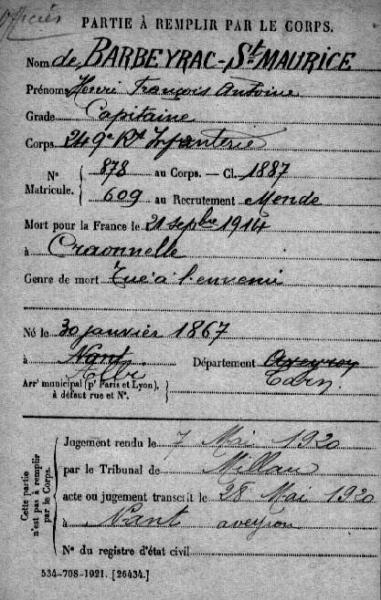 Officier
PARTIE À REMPLIR PAR LE CORPS.
Nom de BARBEYRAC-St MAURICE
Prénoms Henri François Antoine
Grade Capitaine
Corps 249e Rt Infanterie
N° Matricule. 878 au Corps. — Cl. 1887
609 au Recrutement Mende
Mort pour la France le 21 septbre 1914
à Craonnelle
Genre de mort Tué à l'ennemi
Né le 30 janvier 1867
à Nant Département Aveyron
Albi Tarn
Arrt municipal (pr Paris et Lyon),
à défaut rue et N°.
Cette partie
n'est pas à remplir
par le Corps.
Jugement rendu le 7 Mai 1920
par le Tribunal de Millau
acte ou jugement transcrit le 28 Mai 1920
à Nant aveyron
N° du registre d'état civil
534-708-1921. [26434.]